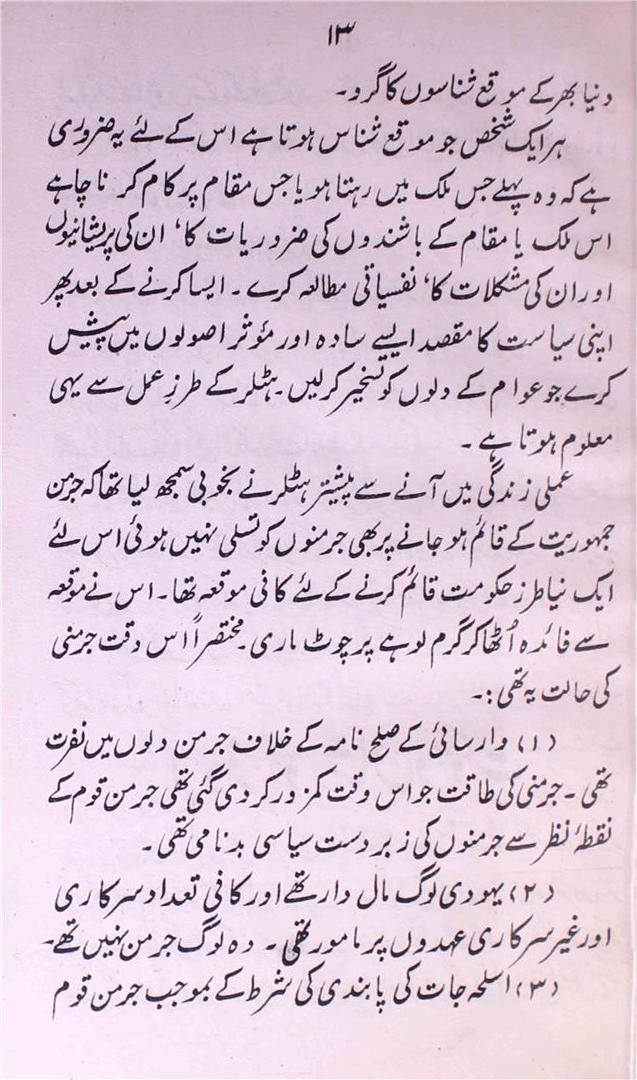 ۱۳
دنیا بھر کے موقع شناسوں کا گرو۔
ہر ایک شخص جو موقع شناس ہوتا ہے اس کے لئے یہ ضروری
ہے کہ وہ پہلے جس ملک میں رہتا ہو یا جس مقام پر کام کرنا چاہے
اس ملک یا مقام کے باشندوں کی ضروریات کا، ان کی پریشانیوں
اور ان کی مشکلات کا، نفسیاتی مطالعہ کرے۔ ایسا کرنے کے بعد پھر
اپنی سیاست کا مقصد ایسے سادہ اور مؤثر اصولوں میں پیش
کرے جو عوام کے دلوں کو تسخیر کرلیں۔ ہٹلر کے طرزِ عمل سے یہی
معلوم ہوتا ہے۔
عملی زندگی میں آنے سے پیشتر ہٹلر نے بخوبی سمجھ لیا تھا کہ جرمن
جمہوریت کے قائم ہو جانے پر بھی جرمنوں کو تسلی نہیں ہوئی اس لئے
ایک نیا طرز حکومت قائم کرنے کے لئے کافی موقعہ تھا۔ اس نے موقعہ
سے فائدہ اُٹھا کر گرم لوہے پر چوٹ ماری۔ مختصراً اس وقت جرمنی
کی حالت یہ تھی:۔
(۱) وارسائی کے صلح نامہ کے خلاف جرمن دلوں میں نفرت
تھی۔ جرمنی کی طاقت جو اس وقت کمزور کر دی گئی تھی جرمن قوم کے
نقطۂ نظر سے جرمنوں کی زبردست سیاسی بدنامی تھی۔
(۲) یہودی لوگ مال دار تھے اور کافی تعداد سرکاری
اور غیر سرکاری عہدوں پر مامور تھی۔ وہ لوگ جرمن نہیں تھے۔
(۳) اسلحہ جات کی پابندی کی شرط کے بموجب جرمن قوم